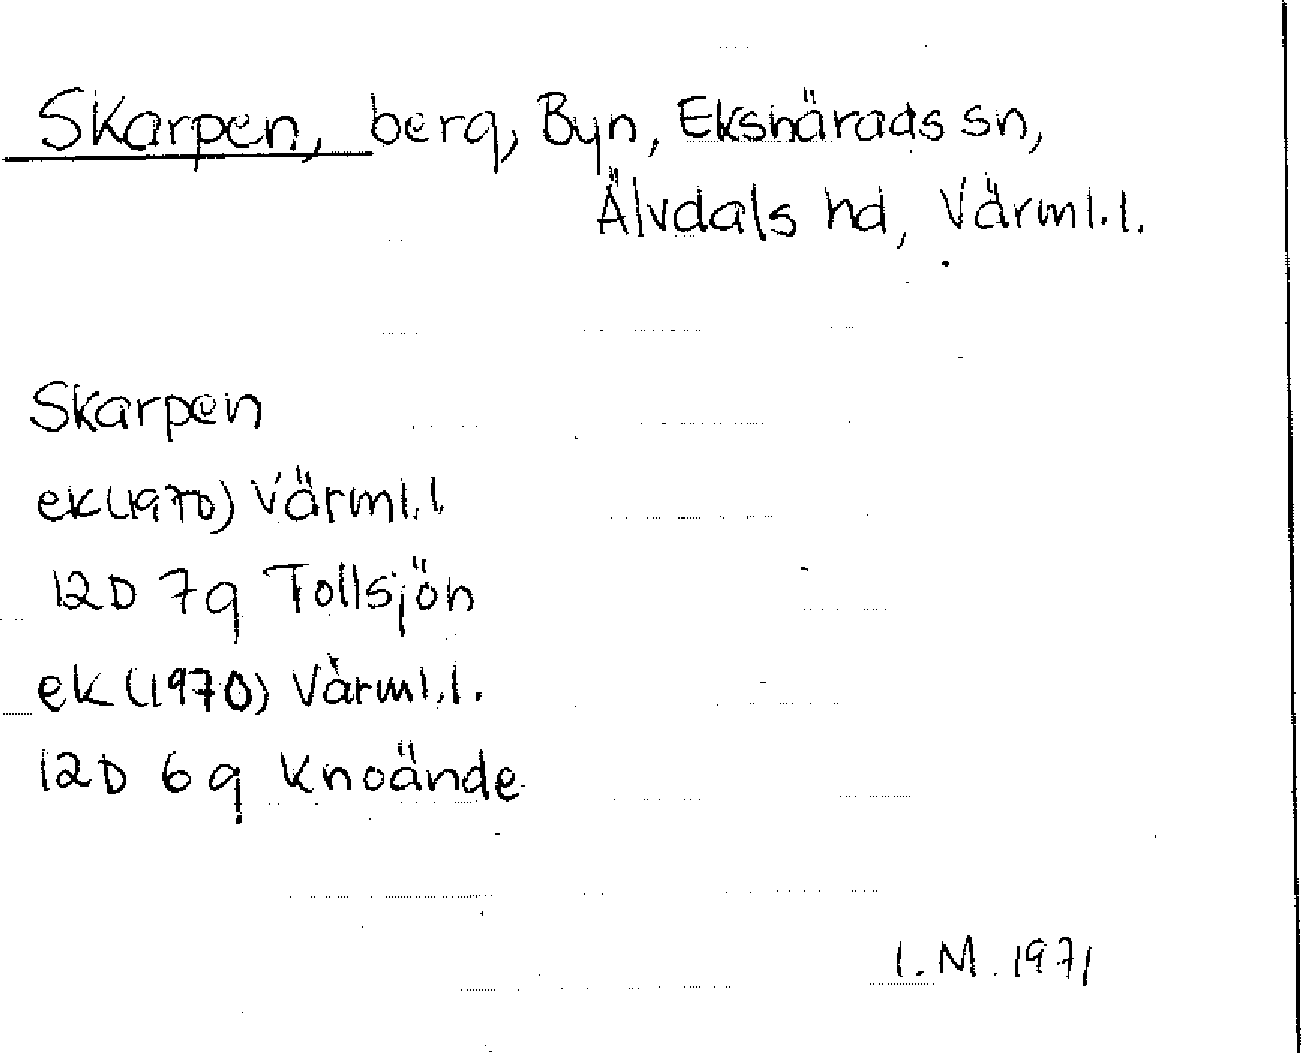 Skarpen, berg, Byn, Ekshärads sn,
Älvdals hd, Värml. l.
Skarpen
ek (1970) Värml. l.
12D 7g Tollsjön
ek (1970) Värml. l.
12D 6g Knoände
I. M. 1971